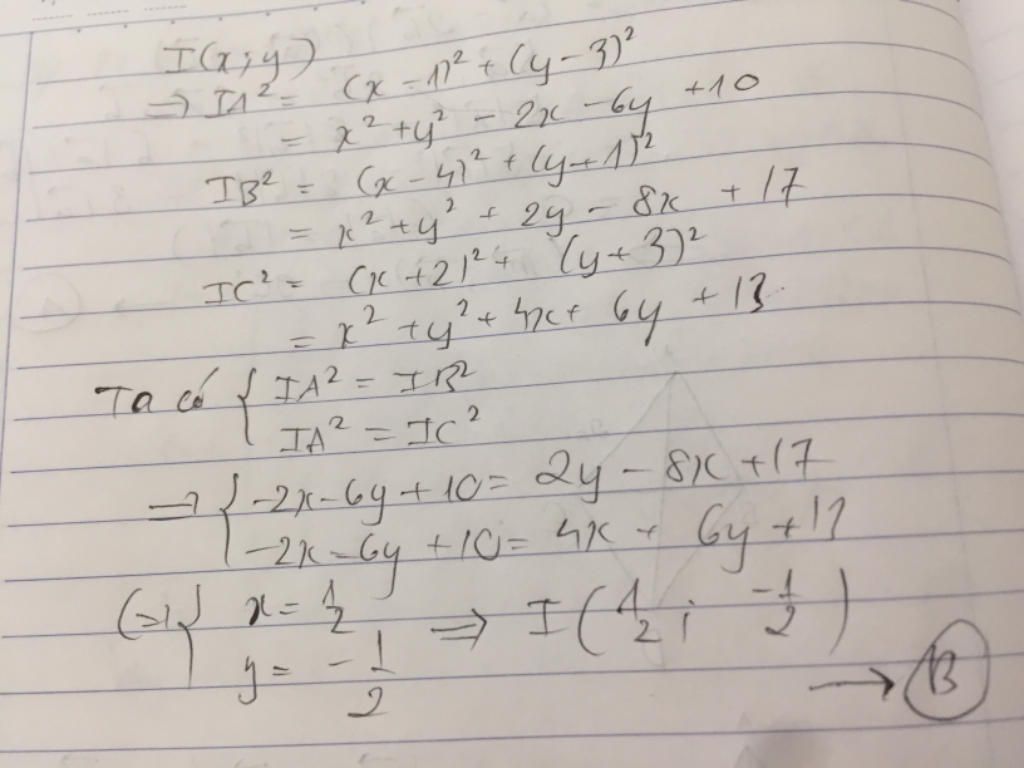 I(x;y)
=> IA² = (x-1)² + (y-3)²
= x² + y² - 2x - 6y + 10
IB² = (x-4)² + (y+1)²
= x² + y² + 2y - 8x + 17
IC² = (x+2)² + (y+3)²
= x² + y² + 4x + 6y + 13
Ta có { IA² = IB²
IA² = IC²
=> { -2x - 6y + 10 = 2y - 8x + 17
-2x - 6y + 10 = 4x + 6y + 13
(=) { x = 1/2 => I(1/2; -1/2)
y = -1/2
→ B